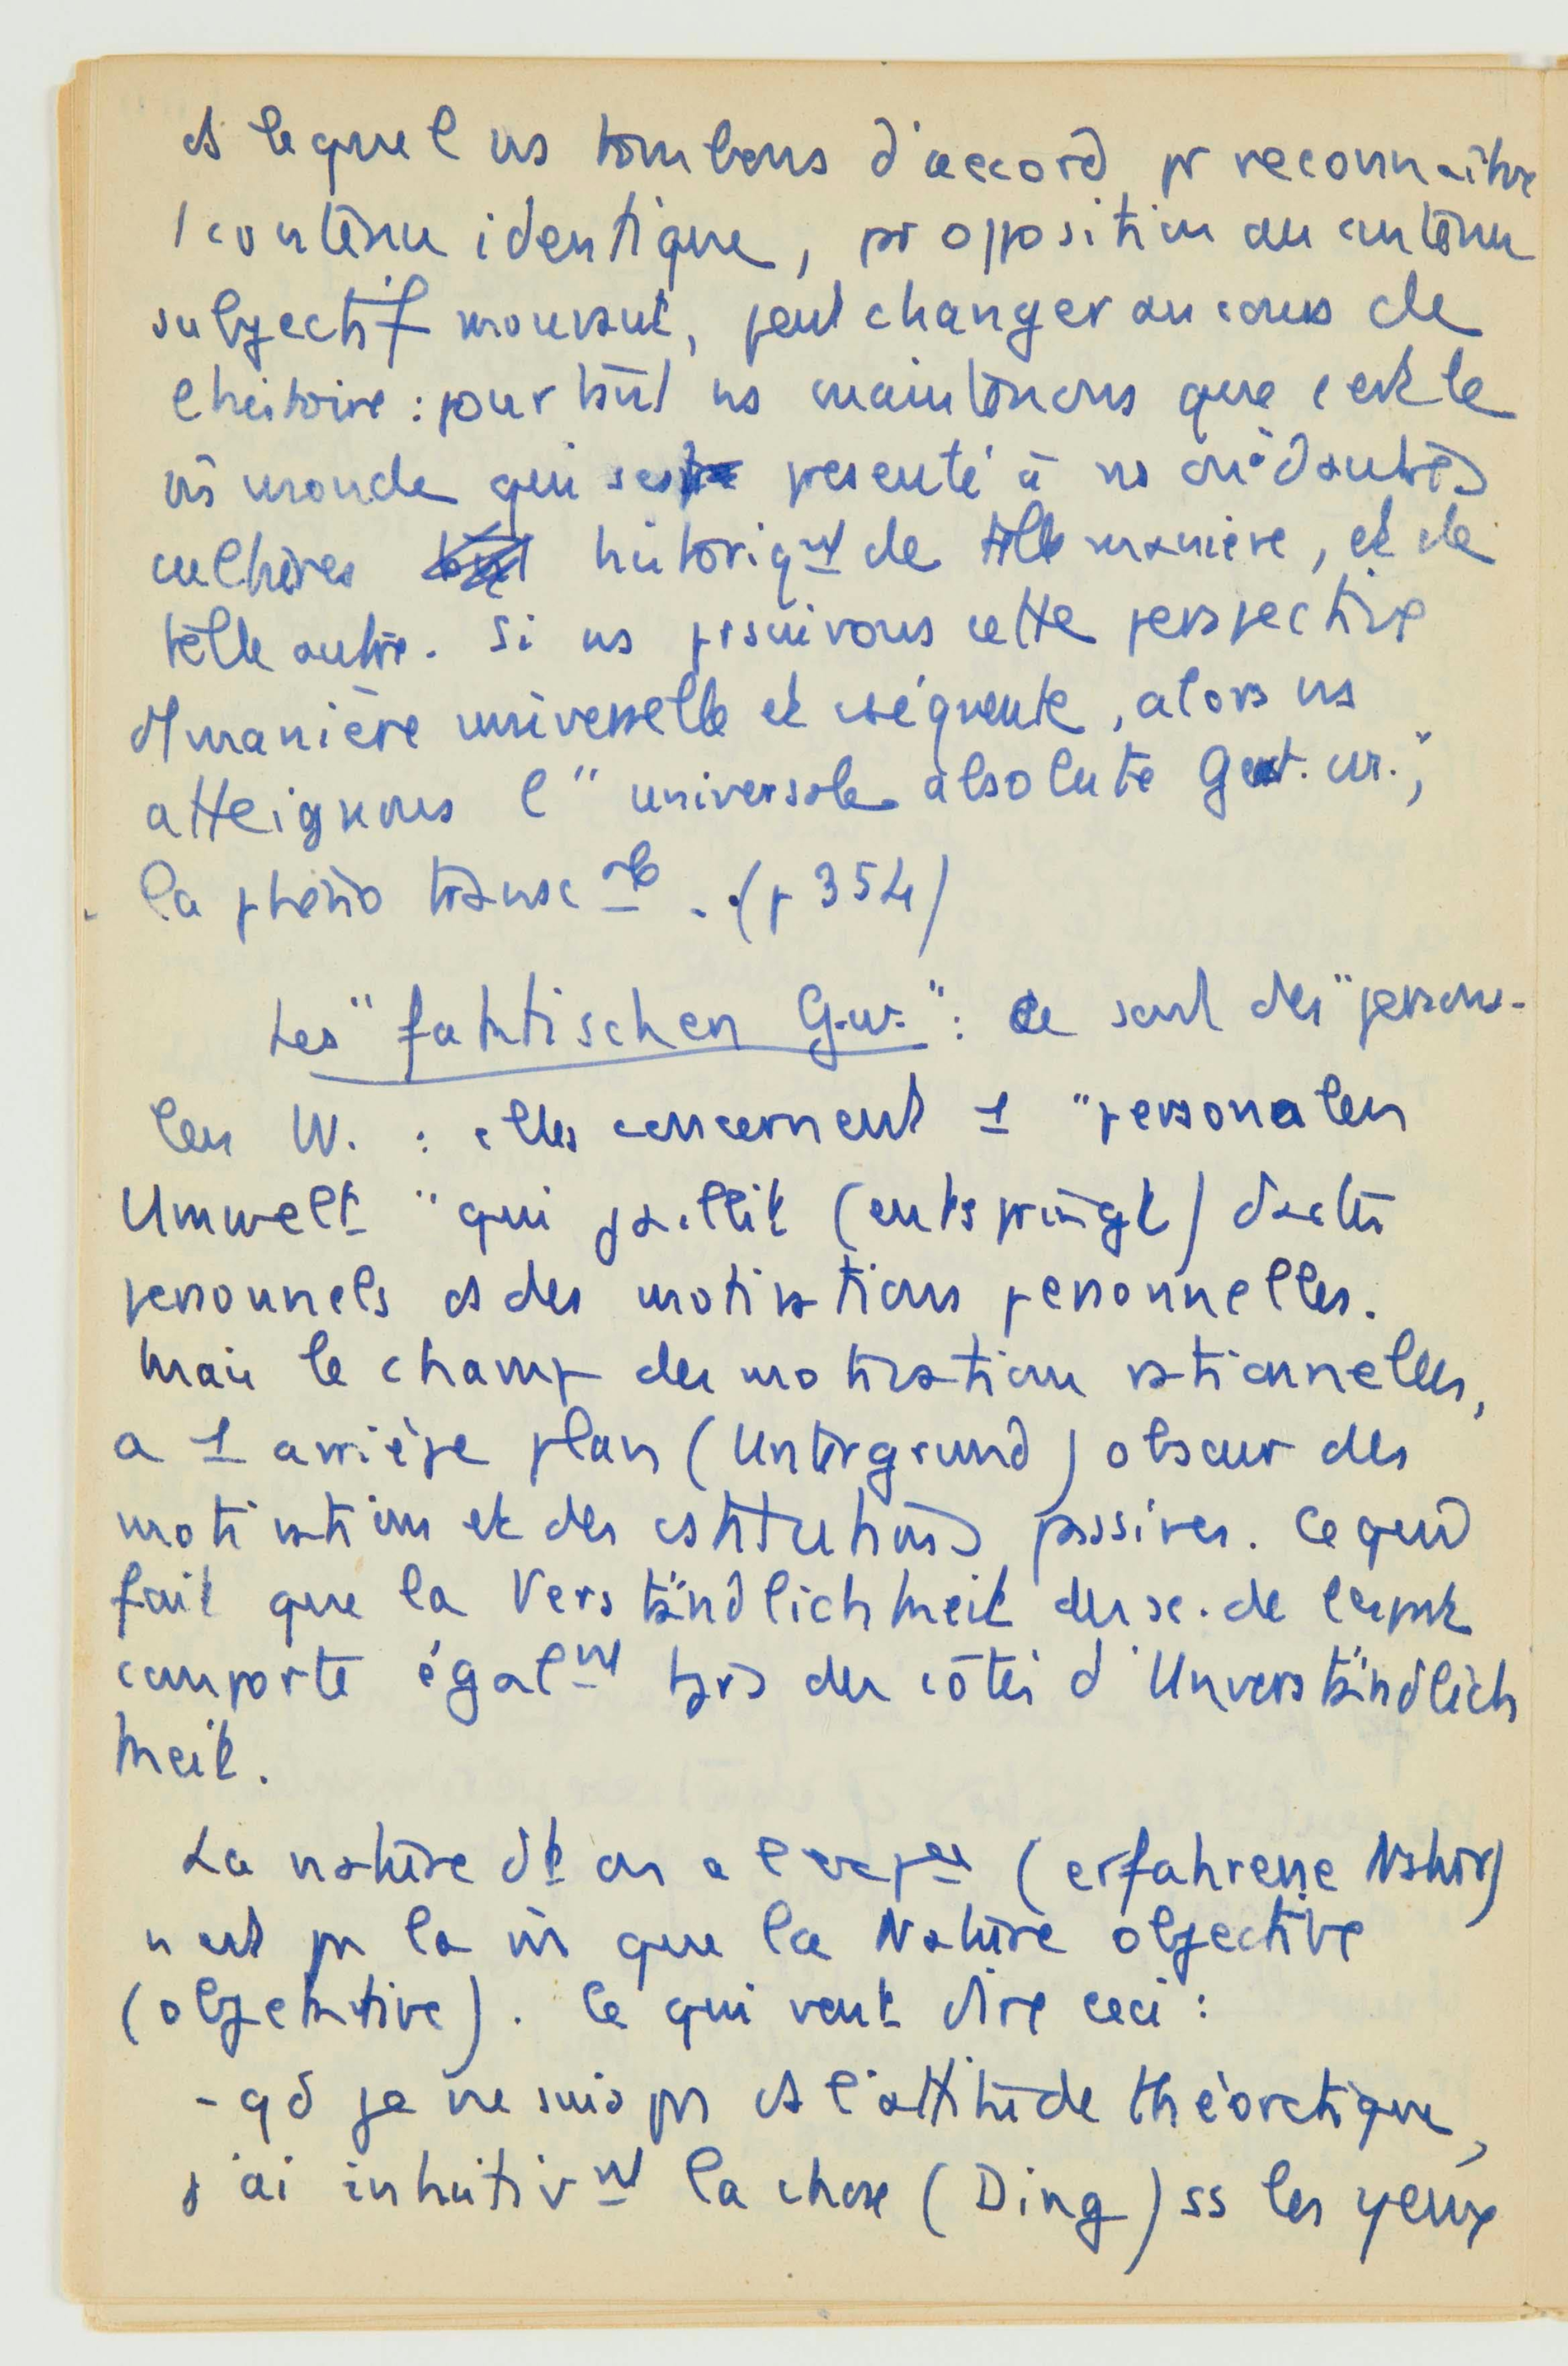 ds lequel ns tombons d'accord pr reconnaître
1 contenu identique, pr opposition au contenu
subjectif mouvant, peut changer au cours de
l'histoire : pourtant ns maintenons que c'est le
m̂ monde qui s'est présenté à ns ou à d'autres
cultures historiqnt de telle manière, et de
telle autre. Si ns prsuivons cette perspective
d'1 manière universelle et cséquente, alors ns
atteignons l'"universale absolute Geist. w.",
la phéno transcle. (p 354)
Les "faktischen G.w." : ce sont des "persona-
len W. : elles concernent 1 "personalen
Umwelt" qui jaillit (entspringt) d'actes
personnels et des motivations personnelles.
Mais le champ des motivations rationnelles,
a 1 arrière plan (Untergrund) obscur des
motivations et des cstitutions passives. Ce qui
fait que la Verständlichkeit des sc. de l'esprit
comporte égalnt tjrs des côtés d'Unverständlich
keit.
La nature dt on a l'expce (erfahrene Natur)
n'est pas la m̂ que la Nature objective
(objektive). Ce qui veut dire ceci :
- qd je ne suis pas ds l'attitude théorétique,
j'ai intuitivnt la chose (Ding) ss les yeux